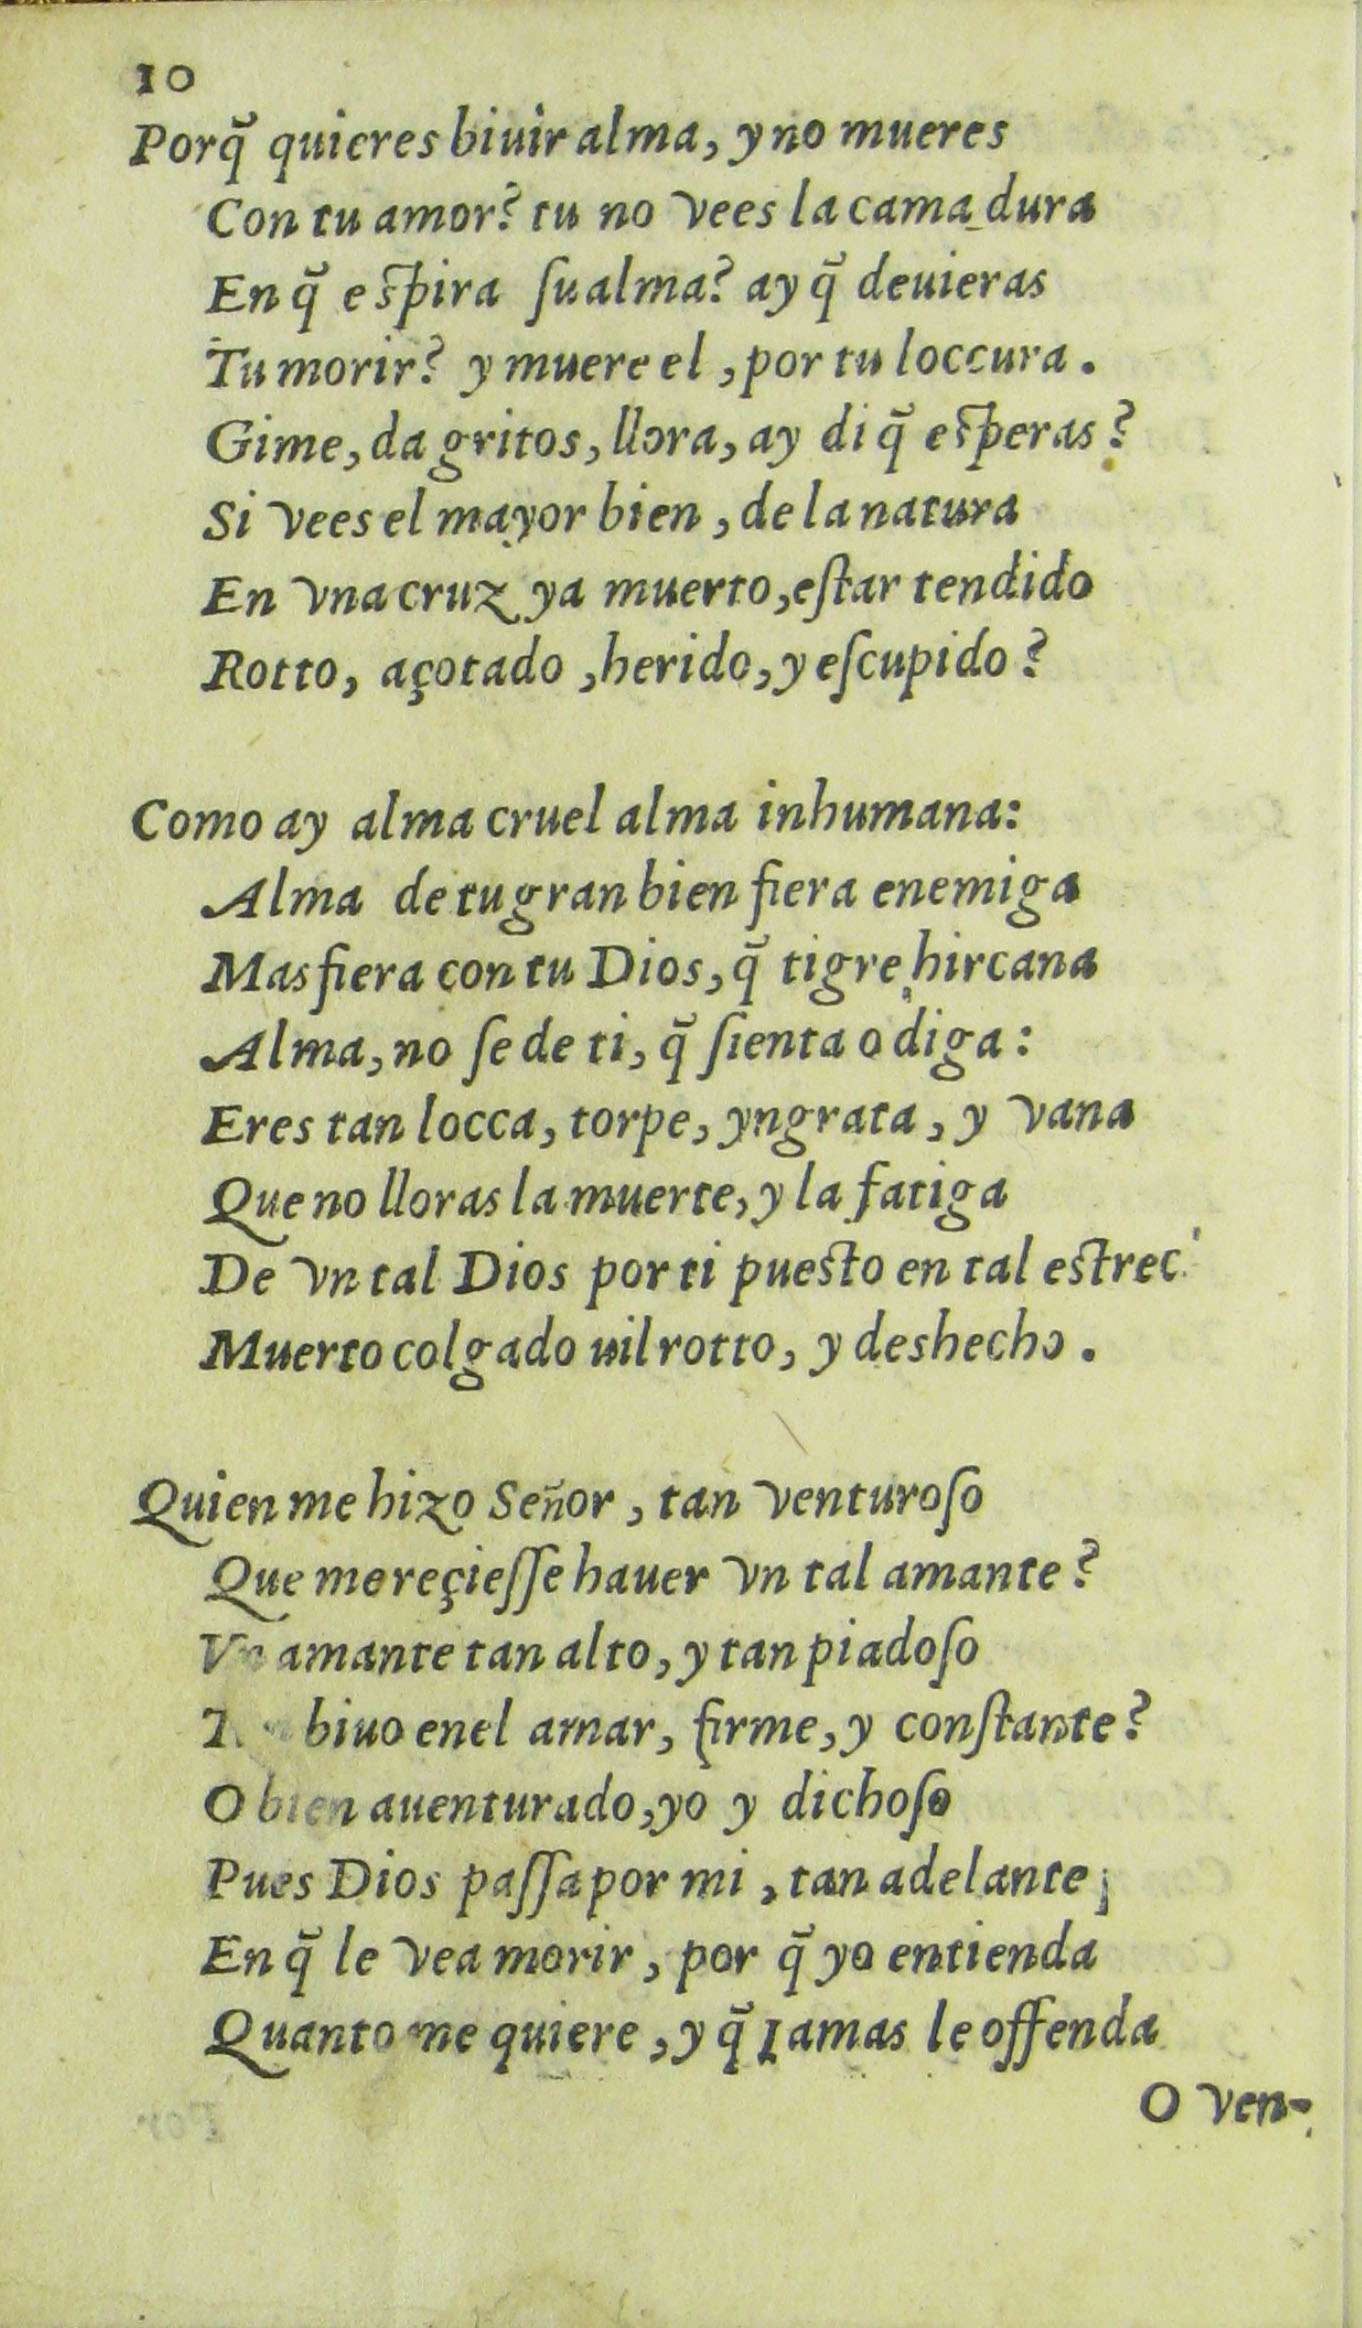 10
Porq̃ quieres biuir alma, y no mueres
Con tu amor? tu no vees la cama dura
En q̃ eſpira ſu alma? ay q̃ deuieras
Tu morir? y muere el, por tu loccura.
Gime, da gritos, llora, ay di q̃ eſperas?
Si vees el mayor bien, de la natura
En vna cruz ya muerto, eſtar tendido
Rotto, açotado, herido, y eſcupido?
Como ay alma cruel alma inhumana:
Alma de tu gran bien fiera enemiga
Mas fiera con tu Dios, q̃ tigre hircana
Alma, no ſe de ti, q̃ ſienta o diga:
Eres tan locca, torpe, yngrata, y vana
Que no lloras la muerte, y la fatiga
De vn tal Dios por ti puesto en tal estrec
Muerto colgado uil rotto, y deshecho.
Quien me hizo Señor, tan venturoſo
Que mereçieſſe hauer vn tal amante?
Vn amante tan alto, y tan piadoſo
biuo enel amar, firme, y conſtante?
O bien auenturado, yo y dichoſo
Pues Dios paſſa por mi, tan adelante
En q̃ le vea morir, por q̃ yo entienda
Quanto me quiere, y q̃ Iamas le offenda
O ven-